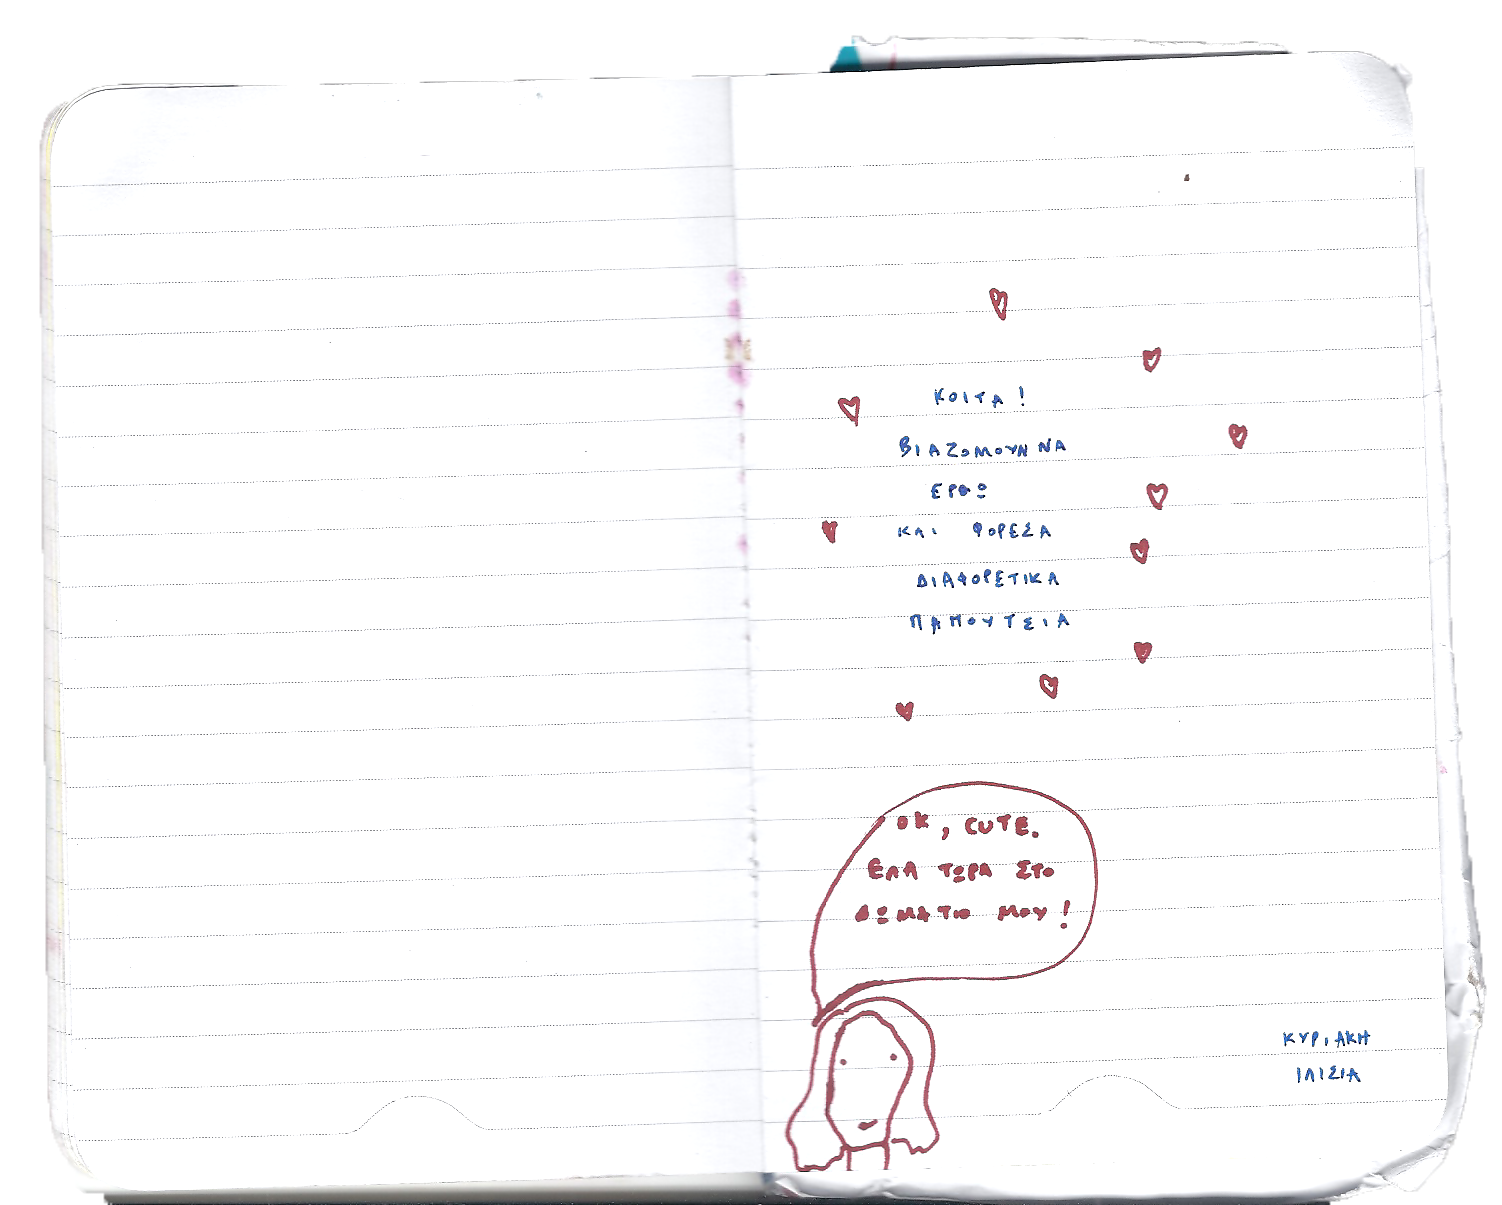 ΚΟΙΤΑ!
ΒΙΑΖΟΜΟΥΝ ΝΑ
ΕΡΘΩ
ΚΑΙ ΦΟΡΕΣΑ
ΔΙΑΦΟΡΕΤΙΚΑ
ΠΑΠΟΥΤΣΙΑ
OK, CUTE.
ΕΛΑ ΤΩΡΑ ΣΤΟ
ΔΩΜΑΤΙΟ ΜΟΥ!
ΚΥΡΙΑΚΗ
ΙΛΙΣΙΑ